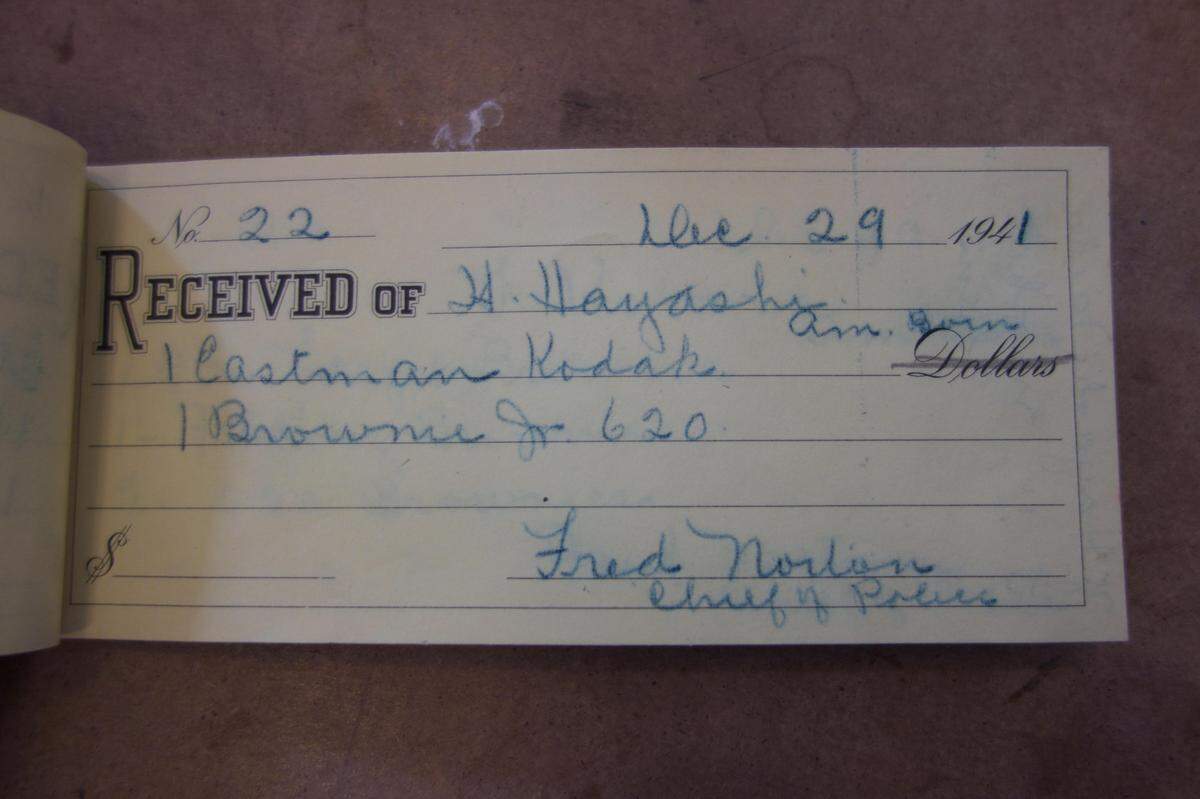 No. 22 Dec. 29 1941
RECEIVED OF H. Hayashi.
Am. Born
1 Eastman Kodak. Dollars
1 Brownie Jr. 620.
$
Fred Norton
Chief of Police